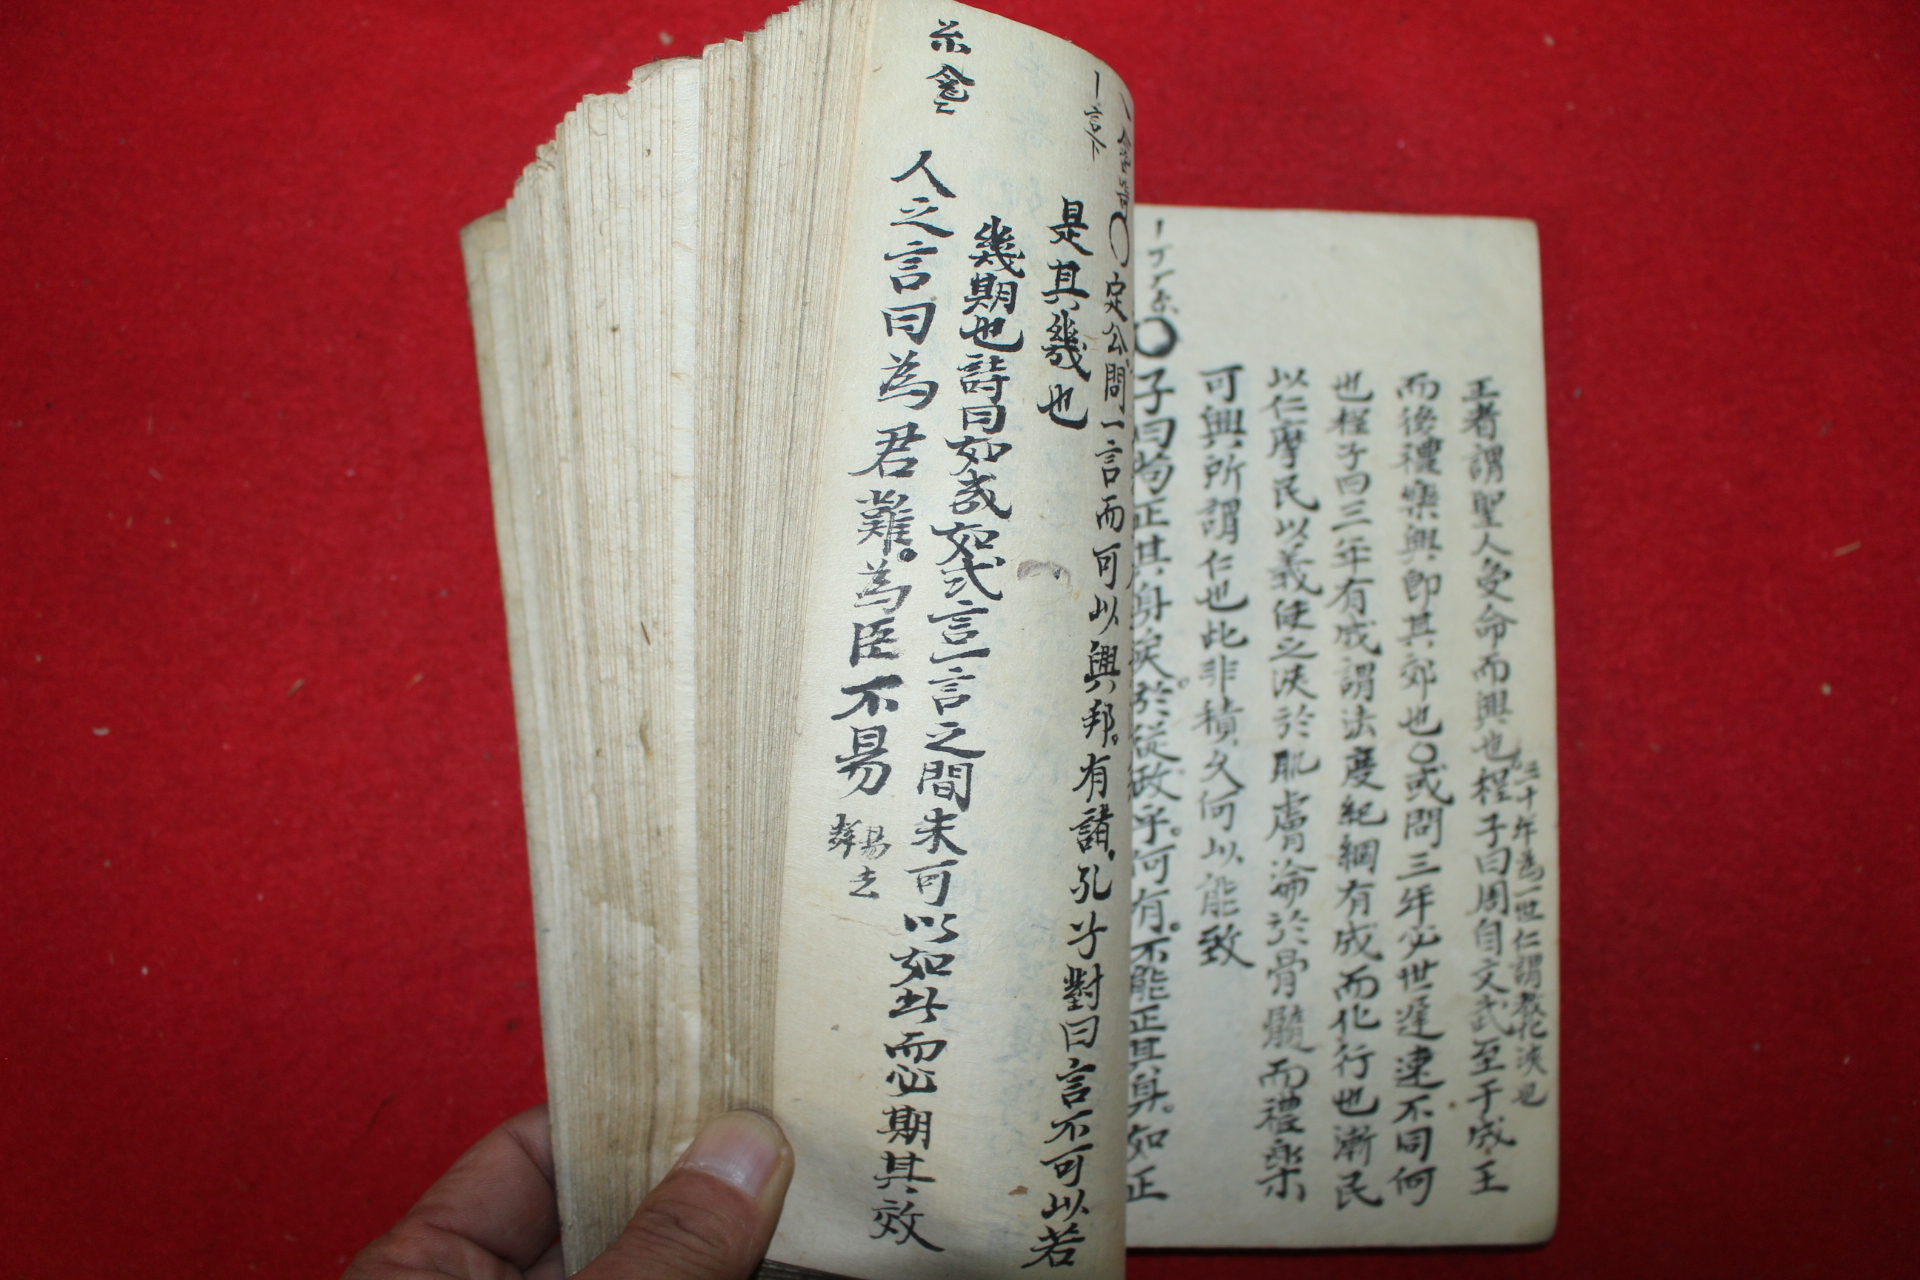 王者謂聖人受命而興也程子曰周自文武至于成王
三十年為一世仁謂教化浹也
而後禮樂興即其效也○或問三年必世遲速不同何
也程子曰三年有成謂法度紀綱有成而化行也漸民
以仁摩民以義使之浹於肌膚淪於骨髓而禮樂
可興所謂仁也此非積久何以能致
○子曰苟正其身矣於從政乎何有不能正其身如正
○定公問一言而可以興邦有諸孔子對曰言不可以若
是其幾也
幾期也詩曰如幾如式言一言之間未可以如此而必期其效
人之言曰為君難為臣不易
易去